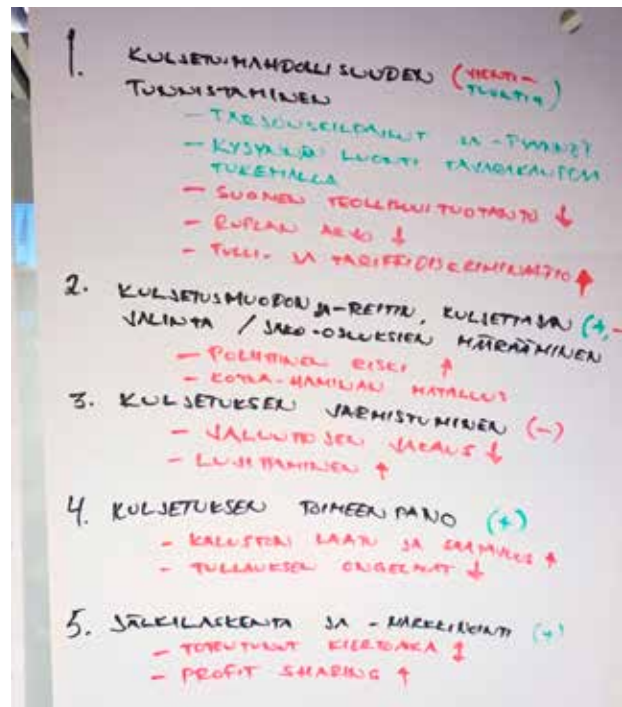 1. KULJETUSMAHDOLLISUUDEN (VIENTI-
TUONTI)
TUNNISTAMINEN
- JA -TWANZ?
- KYSYNNÄN LUONTI TAVARAKAUPPAA
TUKEMALLA
- SUOMEN TEOLLISUUSTUOTANTO ↓
- RUPLAN ARVO ↓
- TULLI- JA TARIFFIDISKRIMINAATIO ↑
2. KULJETUSMUODON JA -REITIN, KULJETTAJAN (+,-
VALINTA / JAKO-OSUUKSIEN MÄÄRÄÄMINEN
- POLIITTINEN RISKI ↑
- KOTKA-HAMINAN MATALUUS
3. KULJETUKSEN VARMISTUMINEN (-)
- VALUUTOJEN VAKAUS ↓
- LUJITTAMINEN ↑
4. KULJETUKSEN TOIMEENPANO (+)
- KALUSTON LAATU JA SAATAVUUS ↑
- TULLAUKSEN ONGELMAT ↓
5. JÄLKILASKENTA JA -MARKKINOINTI (+)
- TOTEUTUNUT KIERTOAIKA ↕
- PROFIT SHARING ↑